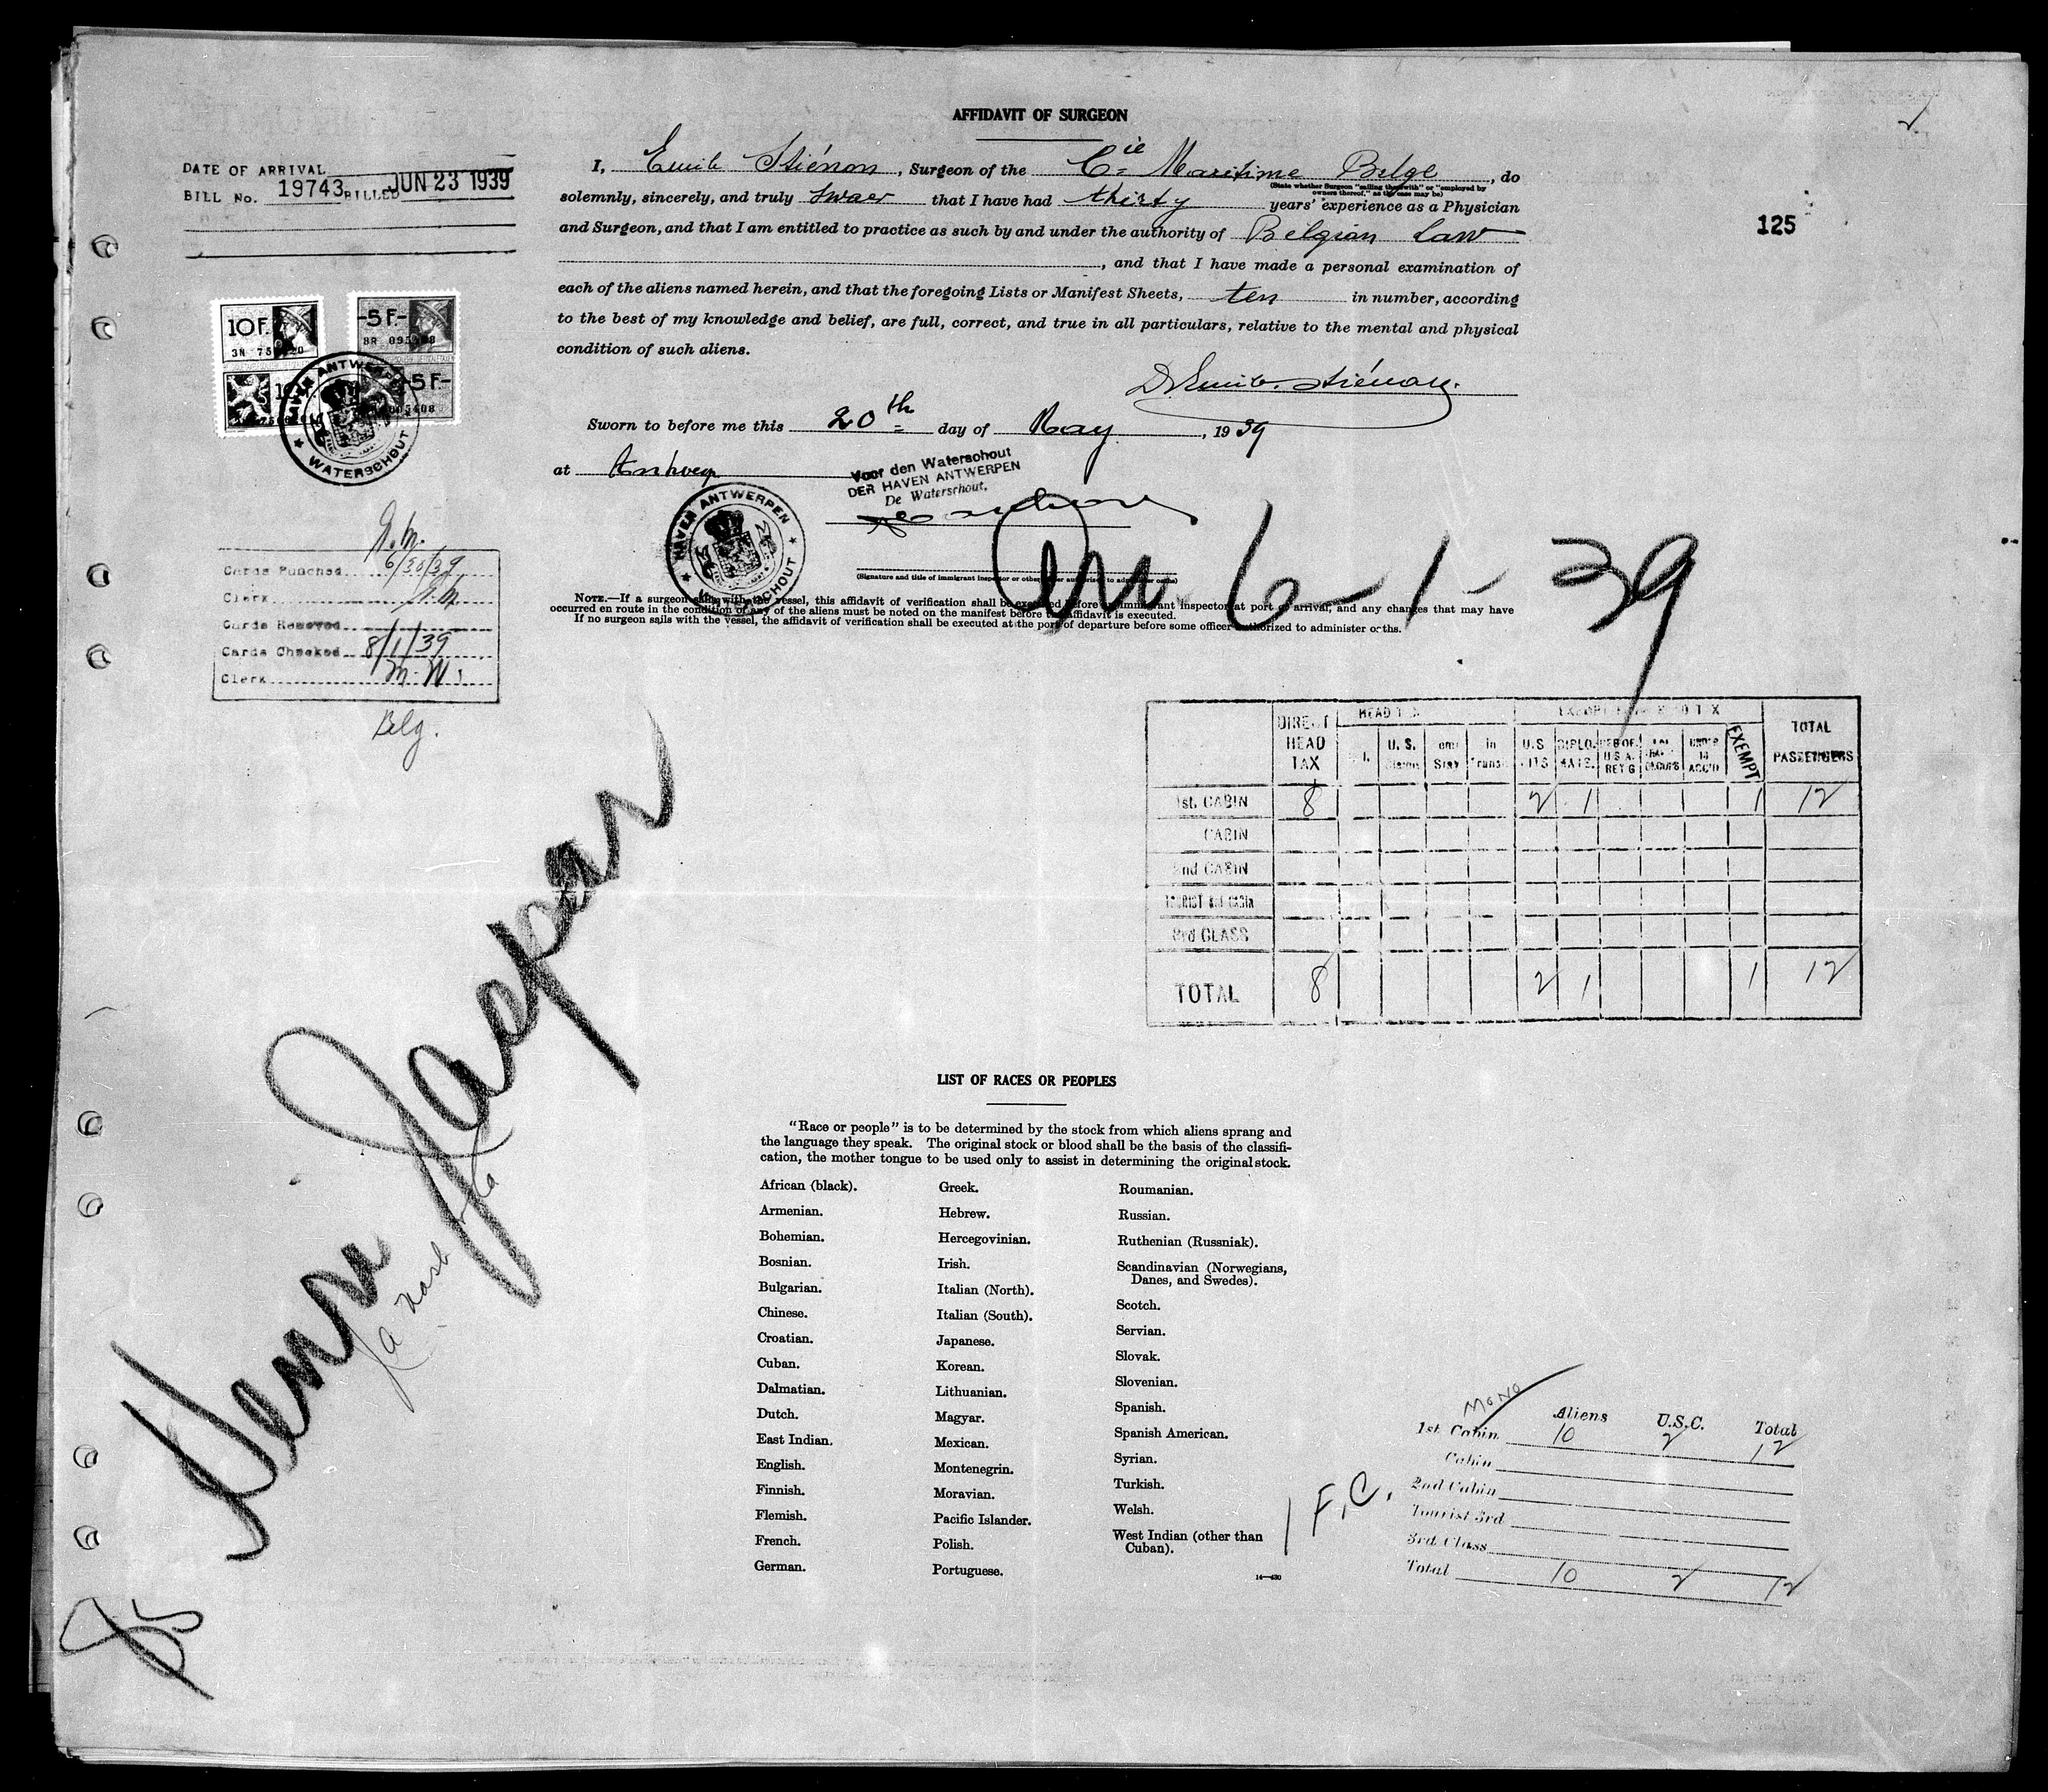 AFFIDAVIT OF SURGEON
DATE OF ARRIVAL
BILL No. 19743 BILLED JUN 23 1939
125
I, Emile Stiénon, Surgeon of the Cie Maritime Belge, do
(State whether Surgeon "sailing therewith" or "employed by owners thereof," as the case may be)
solemnly, sincerely, and truly swaer that I have had thirty years' experience as a Physician
and Surgeon, and that I am entitled to practice as such by and under the authority of Belgian Law
, and that I have made a personal examination of
each of the aliens named herein, and that the foregoing Lists or Manifest Sheets, ten in number, according
to the best of my knowledge and belief, are full, correct, and true in all particulars, relative to the mental and physical
condition of such aliens.
Dr Emile Stiénon.
Sworn to before me this 20th day of May, 1939
at Antwerp
Voor den Waterschout
DER HAVEN ANTWERPEN
De Waterschout,
HAVEN ANTWERPEN
WATERSCHOUT
(Signature and title of immigrant inspector or other officer authorized to administer oaths)
NOTE.—If a surgeon sails with the vessel, this affidavit of verification shall be executed before an immigrant inspector at port of arrival, and any changes that may have
occurred en route in the condition of any of the aliens must be noted on the manifest before the affidavit is executed.
If no surgeon sails with the vessel, the affidavit of verification shall be executed at the port of departure before some officer authorized to administer oaths.
6-1-39
10F.
-5F.-
-5F.-
HAVEN ANTWERPEN
WATERSCHOUT
Cards Punched 6/30/39
Clerk
Cards Removed
Cards Checked 8/1/39
Clerk M.W.
Belg.
DIRECT HEAD TAX
HEAD TAX
EXEMPT FROM HEAD TAX
TOTAL PASSENGERS
U.S.
in Trans.
U.S. CITS
DIPLOMATS
UNDER 14 ACC'D
EXEMPT
1st. CABIN 8 2 1 1 12
CABIN
2nd CABIN
TOURIST 3rd CABIN
3rd CLASS
TOTAL 8 2 1 1 12
Henri Jaspar
85
LIST OF RACES OR PEOPLES
"Race or people" is to be determined by the stock from which aliens sprang and
the language they speak. The original stock or blood shall be the basis of the classifi-
cation, the mother tongue to be used only to assist in determining the original stock.
African (black).
Armenian.
Bohemian.
Bosnian.
Bulgarian.
Chinese.
Croatian.
Cuban.
Dalmatian.
Dutch.
East Indian.
English.
Finnish.
Flemish.
French.
German.
Greek.
Hebrew.
Hercegovinian.
Irish.
Italian (North).
Italian (South).
Japanese.
Korean.
Lithuanian.
Magyar.
Mexican.
Montenegrin.
Moravian.
Pacific Islander.
Polish.
Portuguese.
Roumanian.
Russian.
Ruthenian (Russniak).
Scandinavian (Norwegians,
Danes, and Swedes).
Scotch.
Servian.
Slovak.
Slovenian.
Spanish.
Spanish American.
Syrian.
Turkish.
Welsh.
West Indian (other than
Cuban).
MONO
Aliens U.S.C. Total
1st Cabin 10 2 12
Cabin
2nd Cabin
Tourist 3rd
3rd Class
Total 10 2 12
1 F.C.